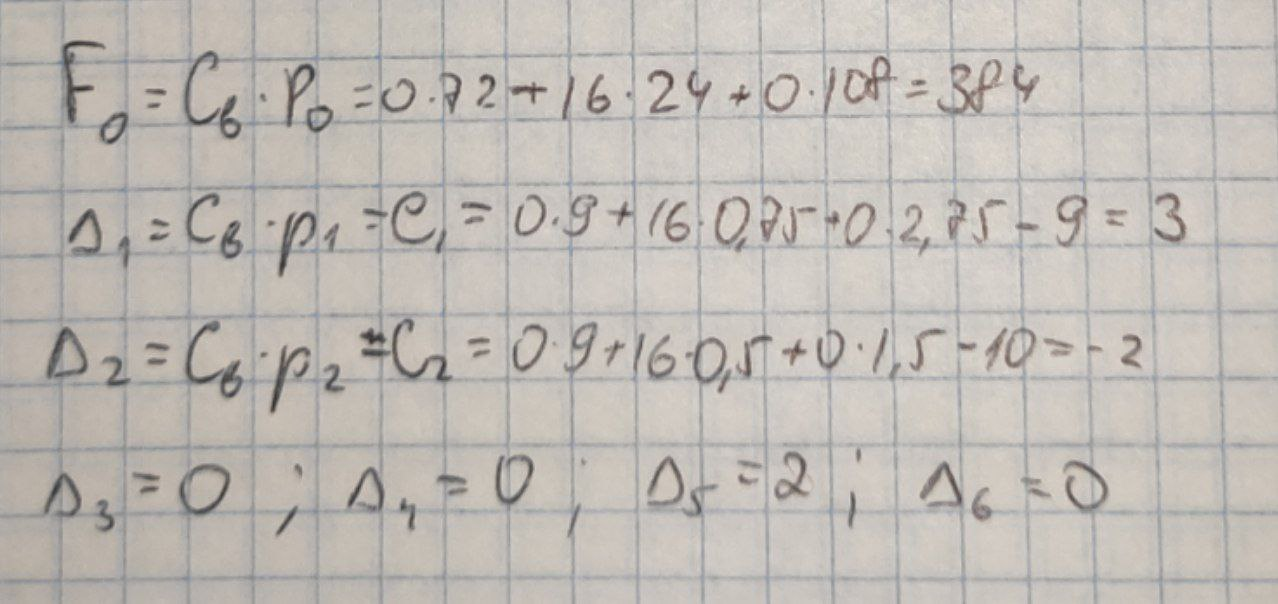 F₀ = Cб · P₀ = 0·72 + 16·24 + 0·108 = 384
Δ₁ = Cб · p₁ - C₁ = 0·9 + 16·0,75 + 0·2,75 - 9 = 3
Δ₂ = Cб · p₂ - C₂ = 0·9 + 16·0,5 + 0·1,5 - 10 = -2
Δ₃ = 0 ; Δ₄ = 0 ; Δ₅ = 2 ; Δ₆ = 0